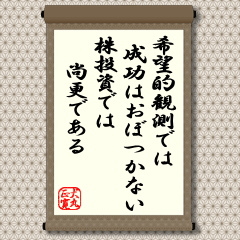 希望的観測では
成功はおぼつかない
株投資では
尚更である